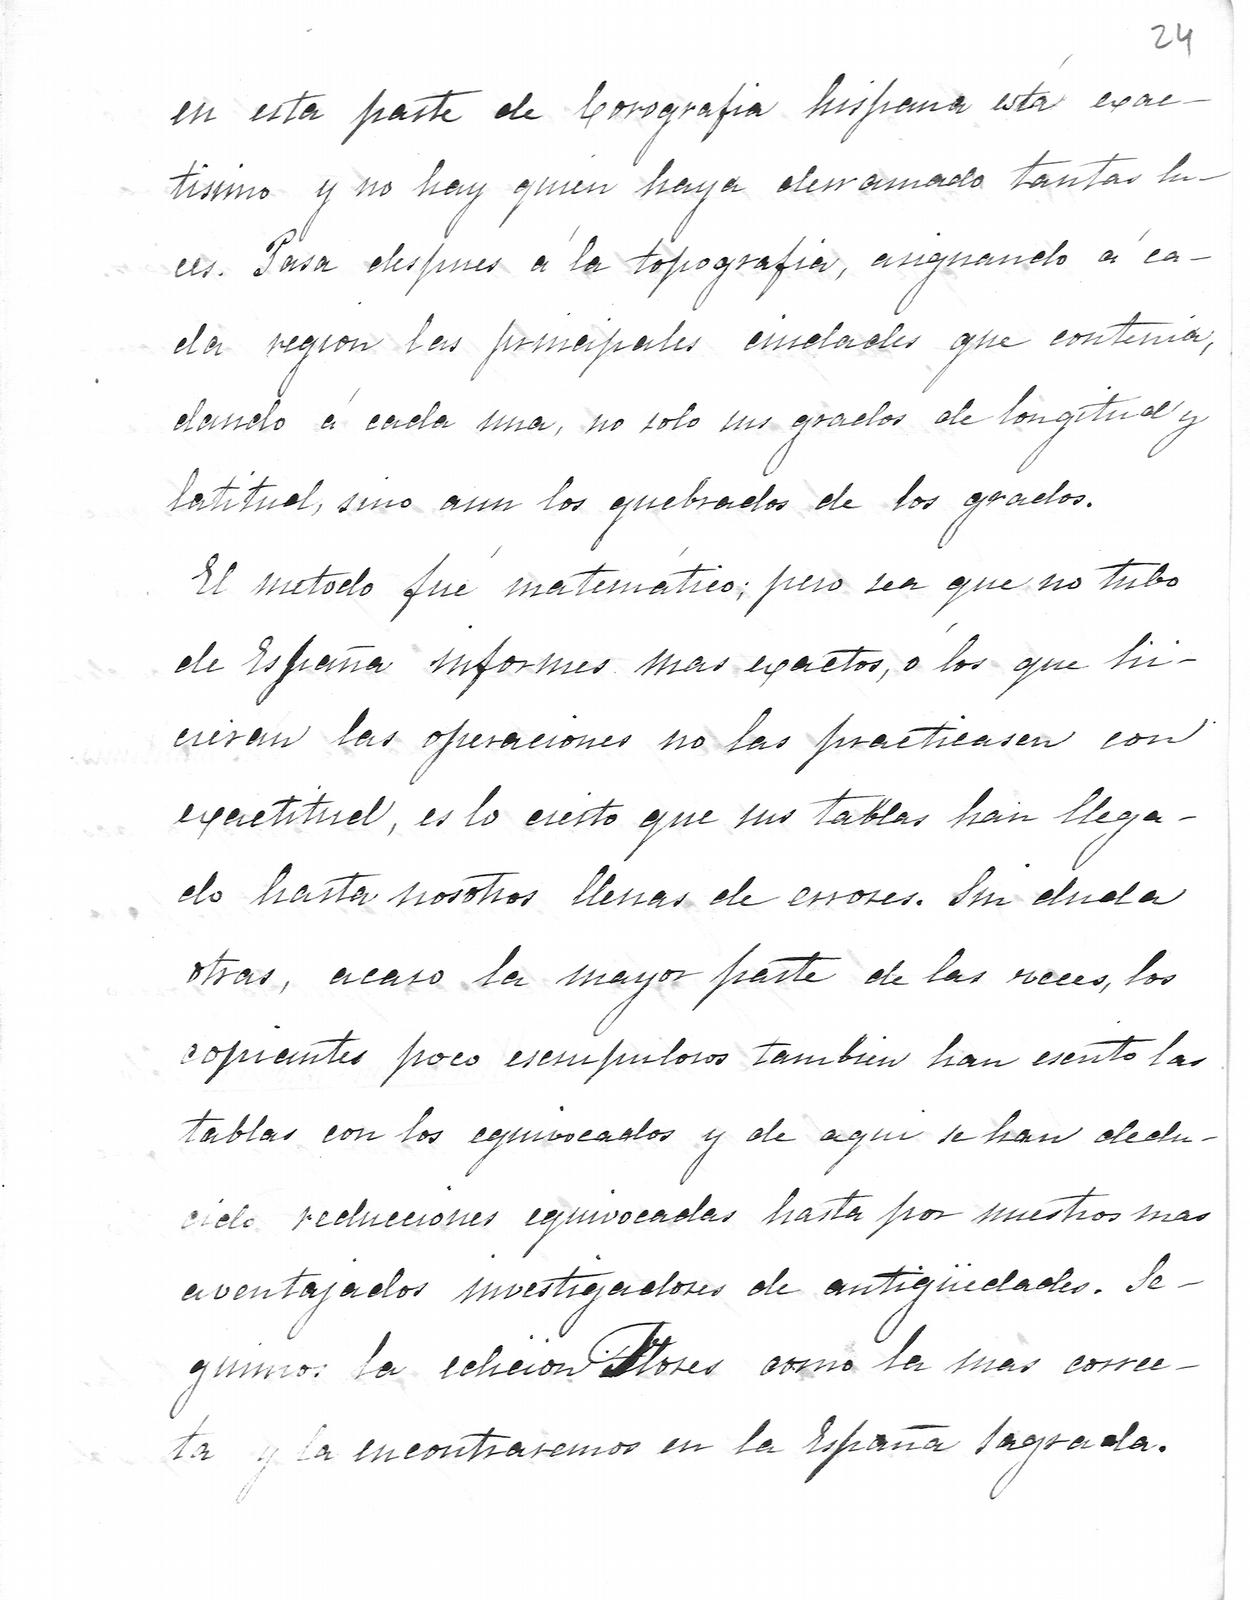 24
en esta parte de Corografia hispana está exac-
tisimo y no hay quien haya derramado tantas lu-
ces. Pasa despues á la topografia, asignando á ca-
da region las principales ciudades que contenia,
dando á cada una, no solo sus grados de longitud y
latitud, sino aun los quebrados de los grados.
El metodo fué matemático; pero sea que no tubo
de España informes mas exactos, ó los que hi-
cieran las operaciones no las practicasen con
exactitud, es lo cierto que sus tablas han llega-
do hasta nosotros llenas de errores. Sin duda
otras, acaso la mayor parte de las veces, los
copiantes poco escrupulosos tambien han escrito las
tablas con los equivocados y de aqui se han dedu-
cido reducciones equivocadas hasta por nuestros mas
aventajados investigadores de antigüedades. Se-
guimos la edicion Flores como la mas correc-
ta y la encontraremos en la España Sagrada.